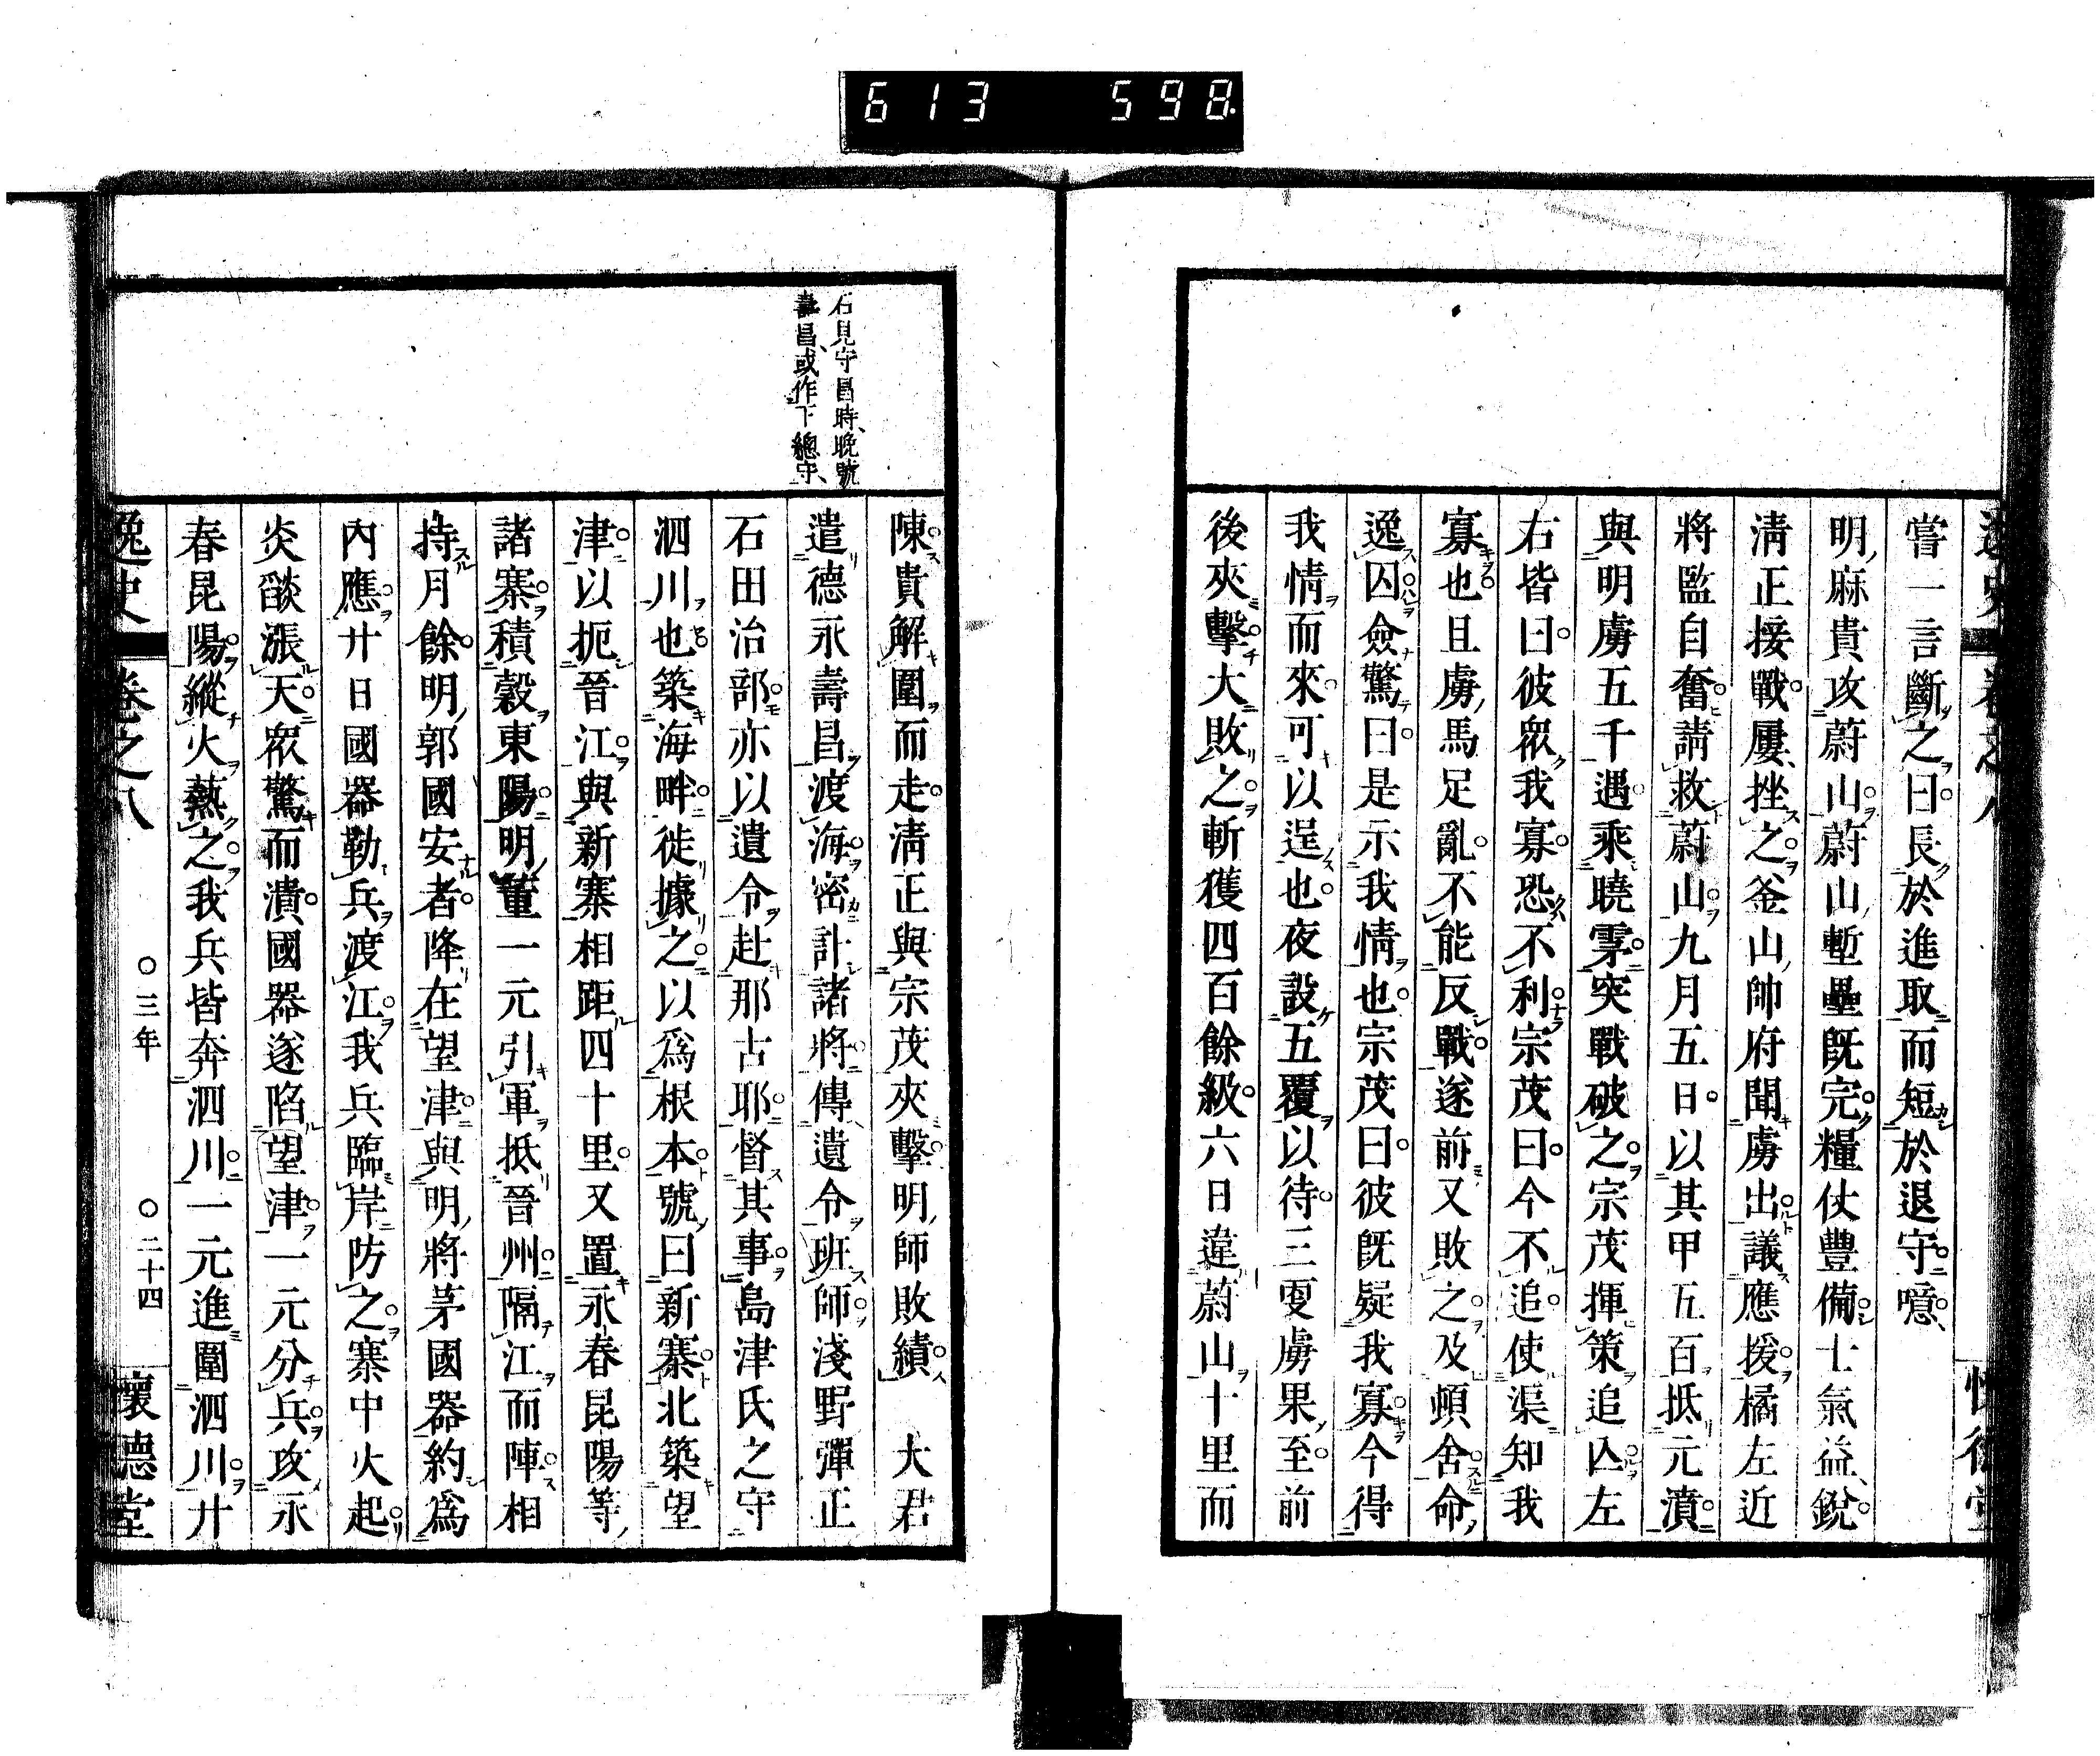 613 598.
嘗一言斷之曰長於進取而短於退守噫
明麻貴攻蔚山蔚山塹壘既完糧仗豐備士氣益銳
淸正接戰屢挫之釜山帥府聞虜出議應援橘左近
將監自奮請救蔚山九月五日以其甲五百抵元濆
與明虜五千遇乘曉霧突戰破之宗茂揮策追亾左
右皆曰彼衆我寡恐不利宗茂曰今不追使渠知我
寡也且虜馬足亂不能反戰遂前又敗之及頓舍命
逸囚僉驚曰是示我情也宗茂曰彼既疑我寡今得
我情而來可以逞也夜設五覆以待三更虜果至前
後夾擊大敗之斬獲四百餘級六日違蔚山十里而
石見守昌時晚號
壽昌或作下總守
陳貴解圍而走淸正與宗茂夾擊明師敗績　大君
遣德永壽昌渡海密計諸將傳遺令班師淺野彈正
石田治部亦以遺令赴那古耶督其事島津氏之守
泗川也築海畔徙據之以爲根本號曰新寨北築望
津以扼晉江與新寨相距四十里又置永春昆陽等
諸寨積穀東陽明董一元引軍抵晉州隔江而陣相
持月餘明郭國安者降在望津與明將茅國器約爲
內應廿日國器勒兵渡江我兵臨岸防之寨中火起
炎燄漲天衆驚而潰國器遂陷望津一元分兵攻永
春昆陽縱火熱之我兵皆奔泗川一元進圍泗川廿
逸史 卷之八 ○三年 ○二十四 懷德堂